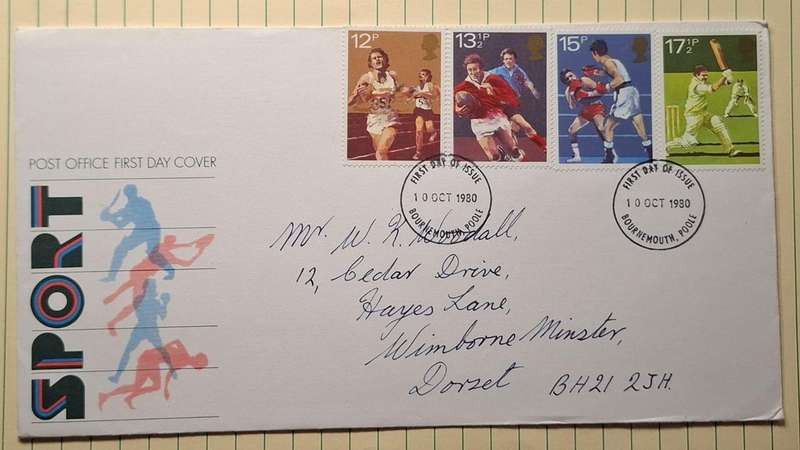 12P
13½P
15P
17½P
POST OFFICE FIRST DAY COVER
SPORT
FIRST DAY OF ISSUE
10 OCT 1980
BOURNEMOUTH, POOLE
FIRST DAY OF ISSUE
10 OCT 1980
BOURNEMOUTH, POOLE
Mr. W. K. Woodall,
12, Cedar Drive,
Hayes Lane,
Wimborne Minster,
Dorset BH21 2JH.